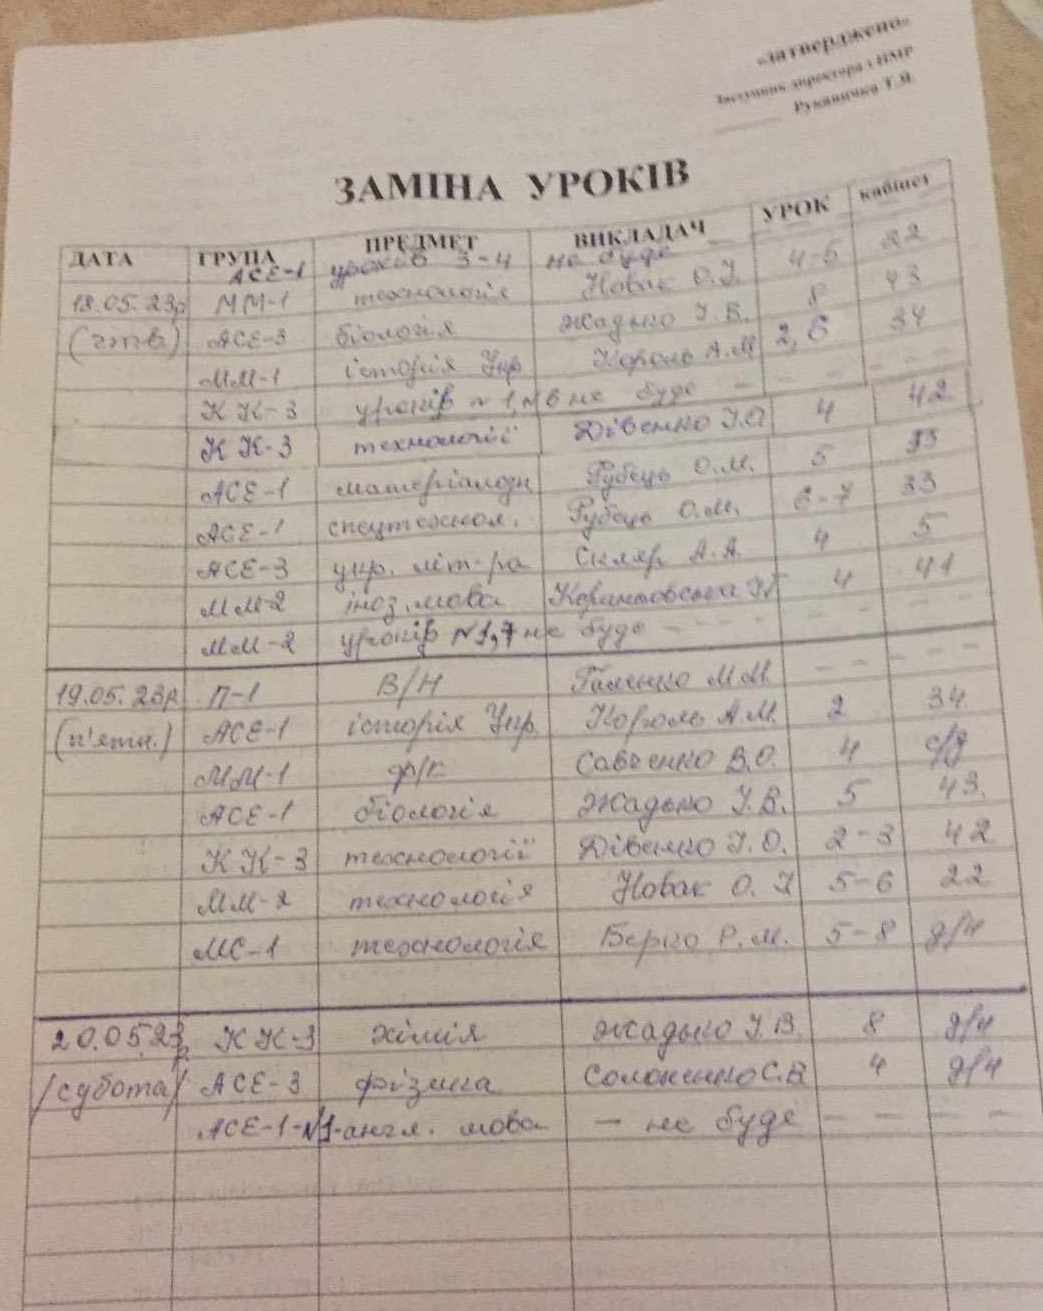 «Затверджено»
Заступник директора з НМР
Рукавичка Т.Я.
ЗАМІНА УРОКІВ
ДАТА ГРУПА ПРЕДМЕТ ВИКЛАДАЧ УРОК кабінет
АСЕ-1 уроків 3-4 не буде
18.05.23р ММ-1 технологія Новак О.І. 4-5 22
(четв) АСЕ-3 біологія Жадько І.В. 8 43
ММ-1 історія Укр Король А.М 2, 6 34
КК-3 уроків №1,№6 не буде - - - - -
КК-3 технології Дівенко І.О 4 42
АСЕ-1 матеріалозн Рубець О.М. 5 33
АСЕ-1 спецтехнол. Рубець О.М. 6-7 33
АСЕ-3 укр. літ-ра Скляр А.А. 4 5
ММ-2 іноз.мова 4 41
ММ-2 уроків №1,7 не буде - - - - - -
19.05.23р П-1 В/Н Галенко М.М. - - - - -
(п'ятн.) АСЕ-1 історія Укр. Король А.М. 2 34
ММ-1 ф/к Савченко В.О. 4 с/з
АСЕ-1 біологія Жадько І.В. 5 43.
КК-3 технології Дівенко І.О. 2-3 42
ММ-2 технологія Новак О. І 5-6 22
МС-1 технологія Р.М. 5-8 д/н
20.05.23р КК-3 хімія Жадько І.В. 8 д/н
/субота/ АСЕ-3 фізика Солоненко С.В 4 д/н
АСЕ-1-№1-англ. мова - не буде - - - -